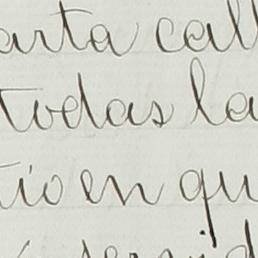 arta call
todas la
tio en qu